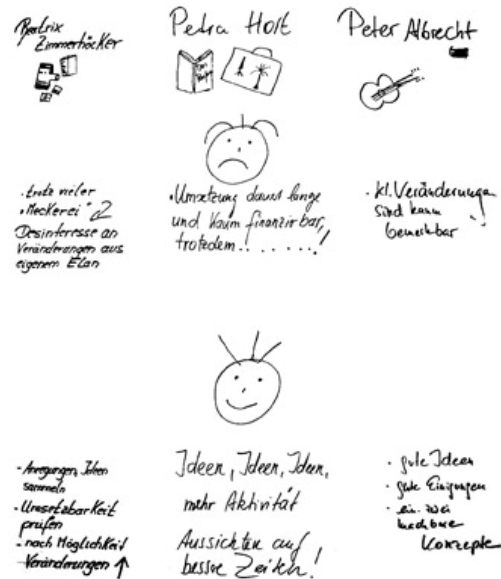 Beatrix
Zimmerhäcker
Petra Holt
Peter Albrecht
- trotz vieler
"Meckerei"
Desinteresse an
Veränderungen aus
eigenem Elan
• Umsetzung dauert lange
und kaum finanzierbar,
trotzdem.......!
- kl. Veränderungen
sind kaum
bemerkbar !
- Anregungen, Ideen
sammeln
- Umsetzbarkeit
prüfen
- nach Möglichkeit
Veränderungen ↑
Ideen, Ideen, Ideen,
mehr Aktivität
Aussichten auf
bessre Zeiten!
- gute Ideen
- gute Einigungen
- ein-zwei
machbare
Konzepte